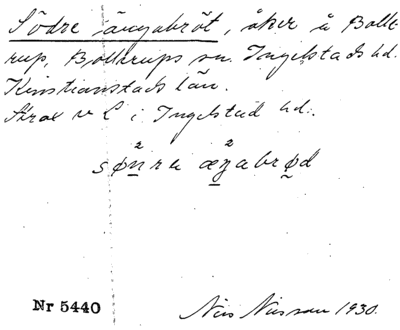 Södre ängabröt, åker å Bolle-
rup, Bollerups sn. Ingelstads hd.
Kristianstads län.
Strax v C i Ingelstad hd.
Nr 5440
Nils Nilsson 1930.